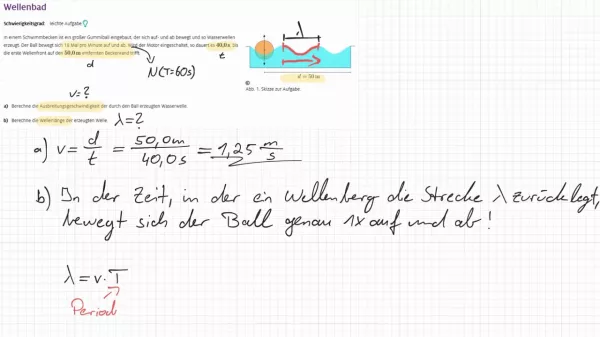 Wellenbad
Schwierigkeitsgrad: leichte Aufgabe
In einem Schwimmbecken ist ein großer Gummiball eingebaut, der sich auf- und ab bewegt und so Wasserwellen
erzeugt. Der Ball bewegt sich 16 Mal pro Minute auf und ab. Wird der Motor eingeschaltet, so dauert es 40,0 s, bis
die erste Wellenfront auf den 50,0 m entfernten Beckenrand trifft.
d
t
N(T=60s)
λ
d = 50 m
Abb. 1: Skizze zur Aufgabe
v=?
a) Berechne die Ausbreitungsgeschwindigkeit der durch den Ball erzeugten Wasserwelle.
λ=?
b) Berechne die Wellenlänge der erzeugten Welle.
a) v = d/t = 50,0m/40,0s = 1,25 m/s
b) In der Zeit, in der ein Wellenberg die Strecke λ zurücklegt,
bewegt sich der Ball genau 1x auf und ab!
λ = v · T
Period